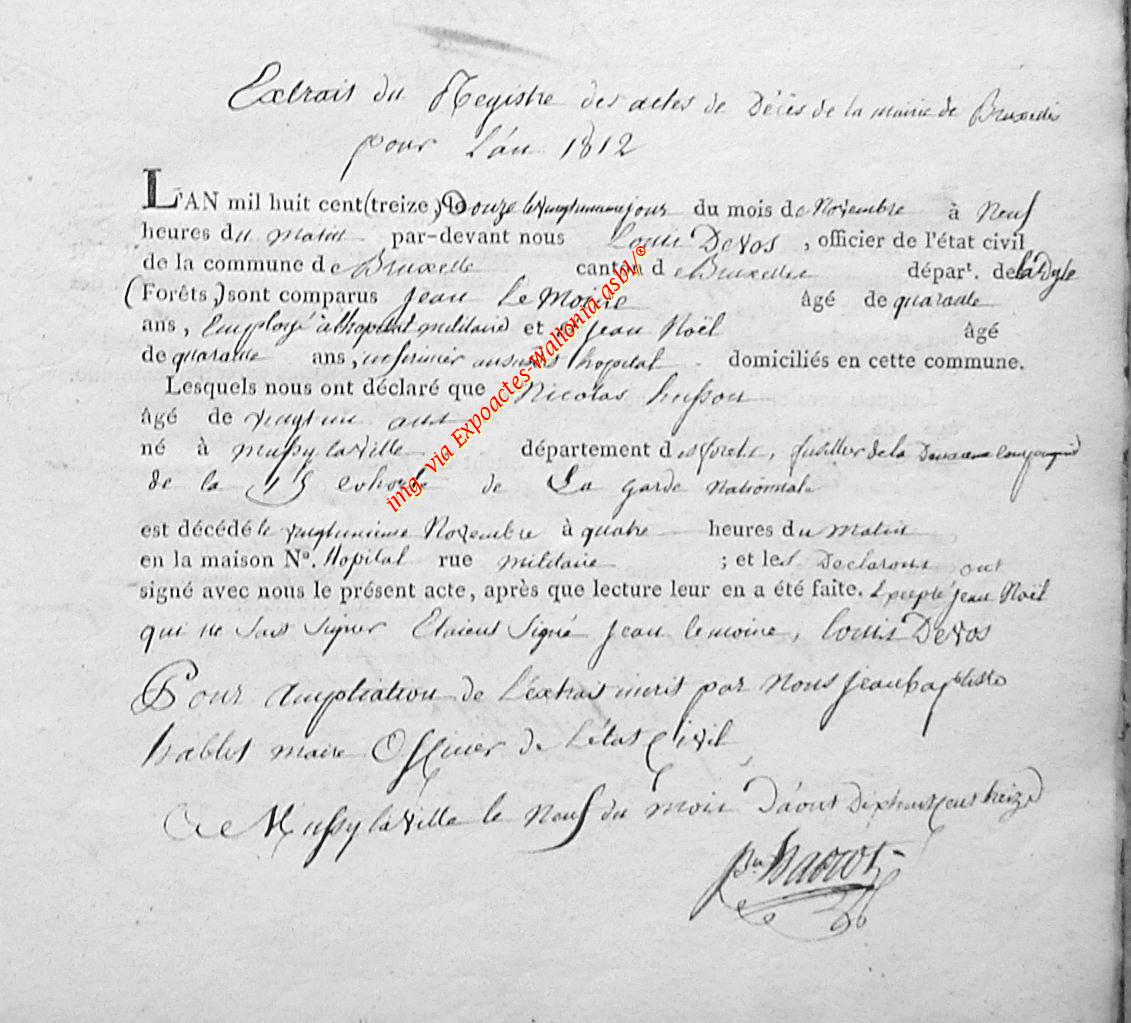 Extrait du Registre des actes de Décès de la mairie de Bruxelles
pour L'an 1812
L'AN mil huit cent (treize,) Douze le vingtunieme jour du mois de Novembre à Neuf
heures du matin par-devant nous Louis Devos, officier de l'état civil
de la commune de Bruxelle canton de Bruxelles départ. de la Dyle
(Forêts,) sont comparus Jean Le Moine âgé de quarante
ans, Employé à l'hopital militaire et Jean Noël âgé
de quarante ans, infirmier hopital domiciliés en cette commune.
Lesquels nous ont déclaré que Nicolas husson
âgé de vingt un ans
né à mussy la ville département des forets, fusillier de la Deuxieme compagnie
de la 15 cohorte de La garde Nationnale
est décédé le vingtunieme Novembre à quatre heures du matin
en la maison No. Hopital rue militaire ; et les Declarans ont
signé avec nous le présent acte, après que lecture leur en a été faite. Excepté jean Noël
qui ne sait signer Etaient Signé jean lemoine, Louis Devos
Pour Ampliation de L'extrait inscrit par Nous jean baptiste
hablot maire Officier de L'état Civil
A Mussy la ville le Neuf du mois D'áout Dixhuit cent treize
img via Expoactes-Wallonia asbl/®